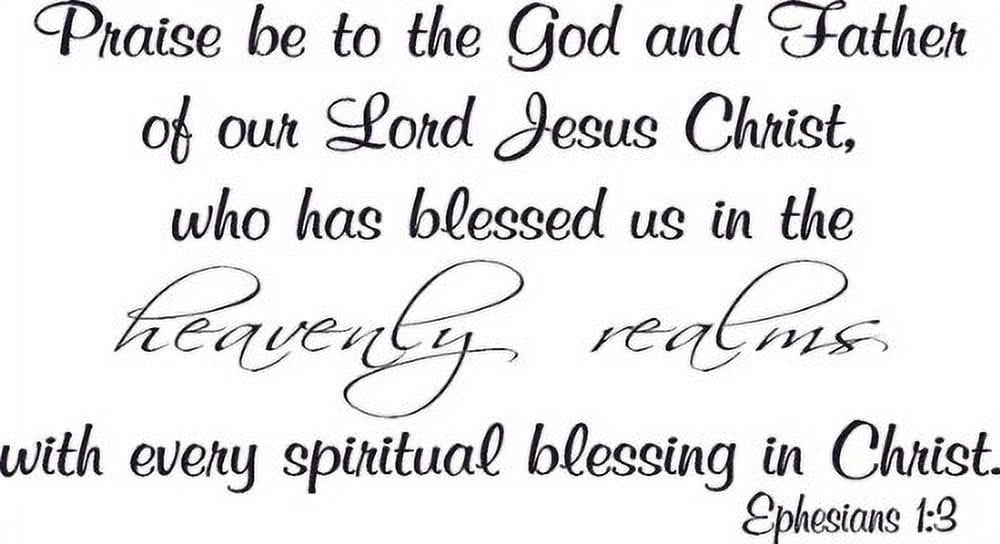 Praise be to the God and Father
of our Lord Jesus Christ,
who has blessed us in the
heavenly realms
with every spiritual blessing in Christ.
Ephesians 1:3